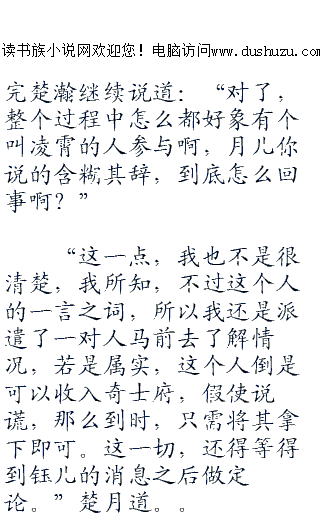 读书族小说网欢迎您！电脑访问www.dushuzu.com
完楚瀚继续说道：“对了，
整个过程中怎么都好象有个
叫凌霄的人参与啊，月儿你
说的含糊其辞，到底怎么回
事啊？”
“这一点，我也不是很
清楚，我所知，不过这个人
的一言之词，所以我还是派
遣了一对人马前去了解情
况，若是属实，这个人倒是
可以收入奇士府，假使说
谎，那么到时，只需将其拿
下即可。这一切，还得等得
到钰儿的消息之后做定
论。”楚月道。。